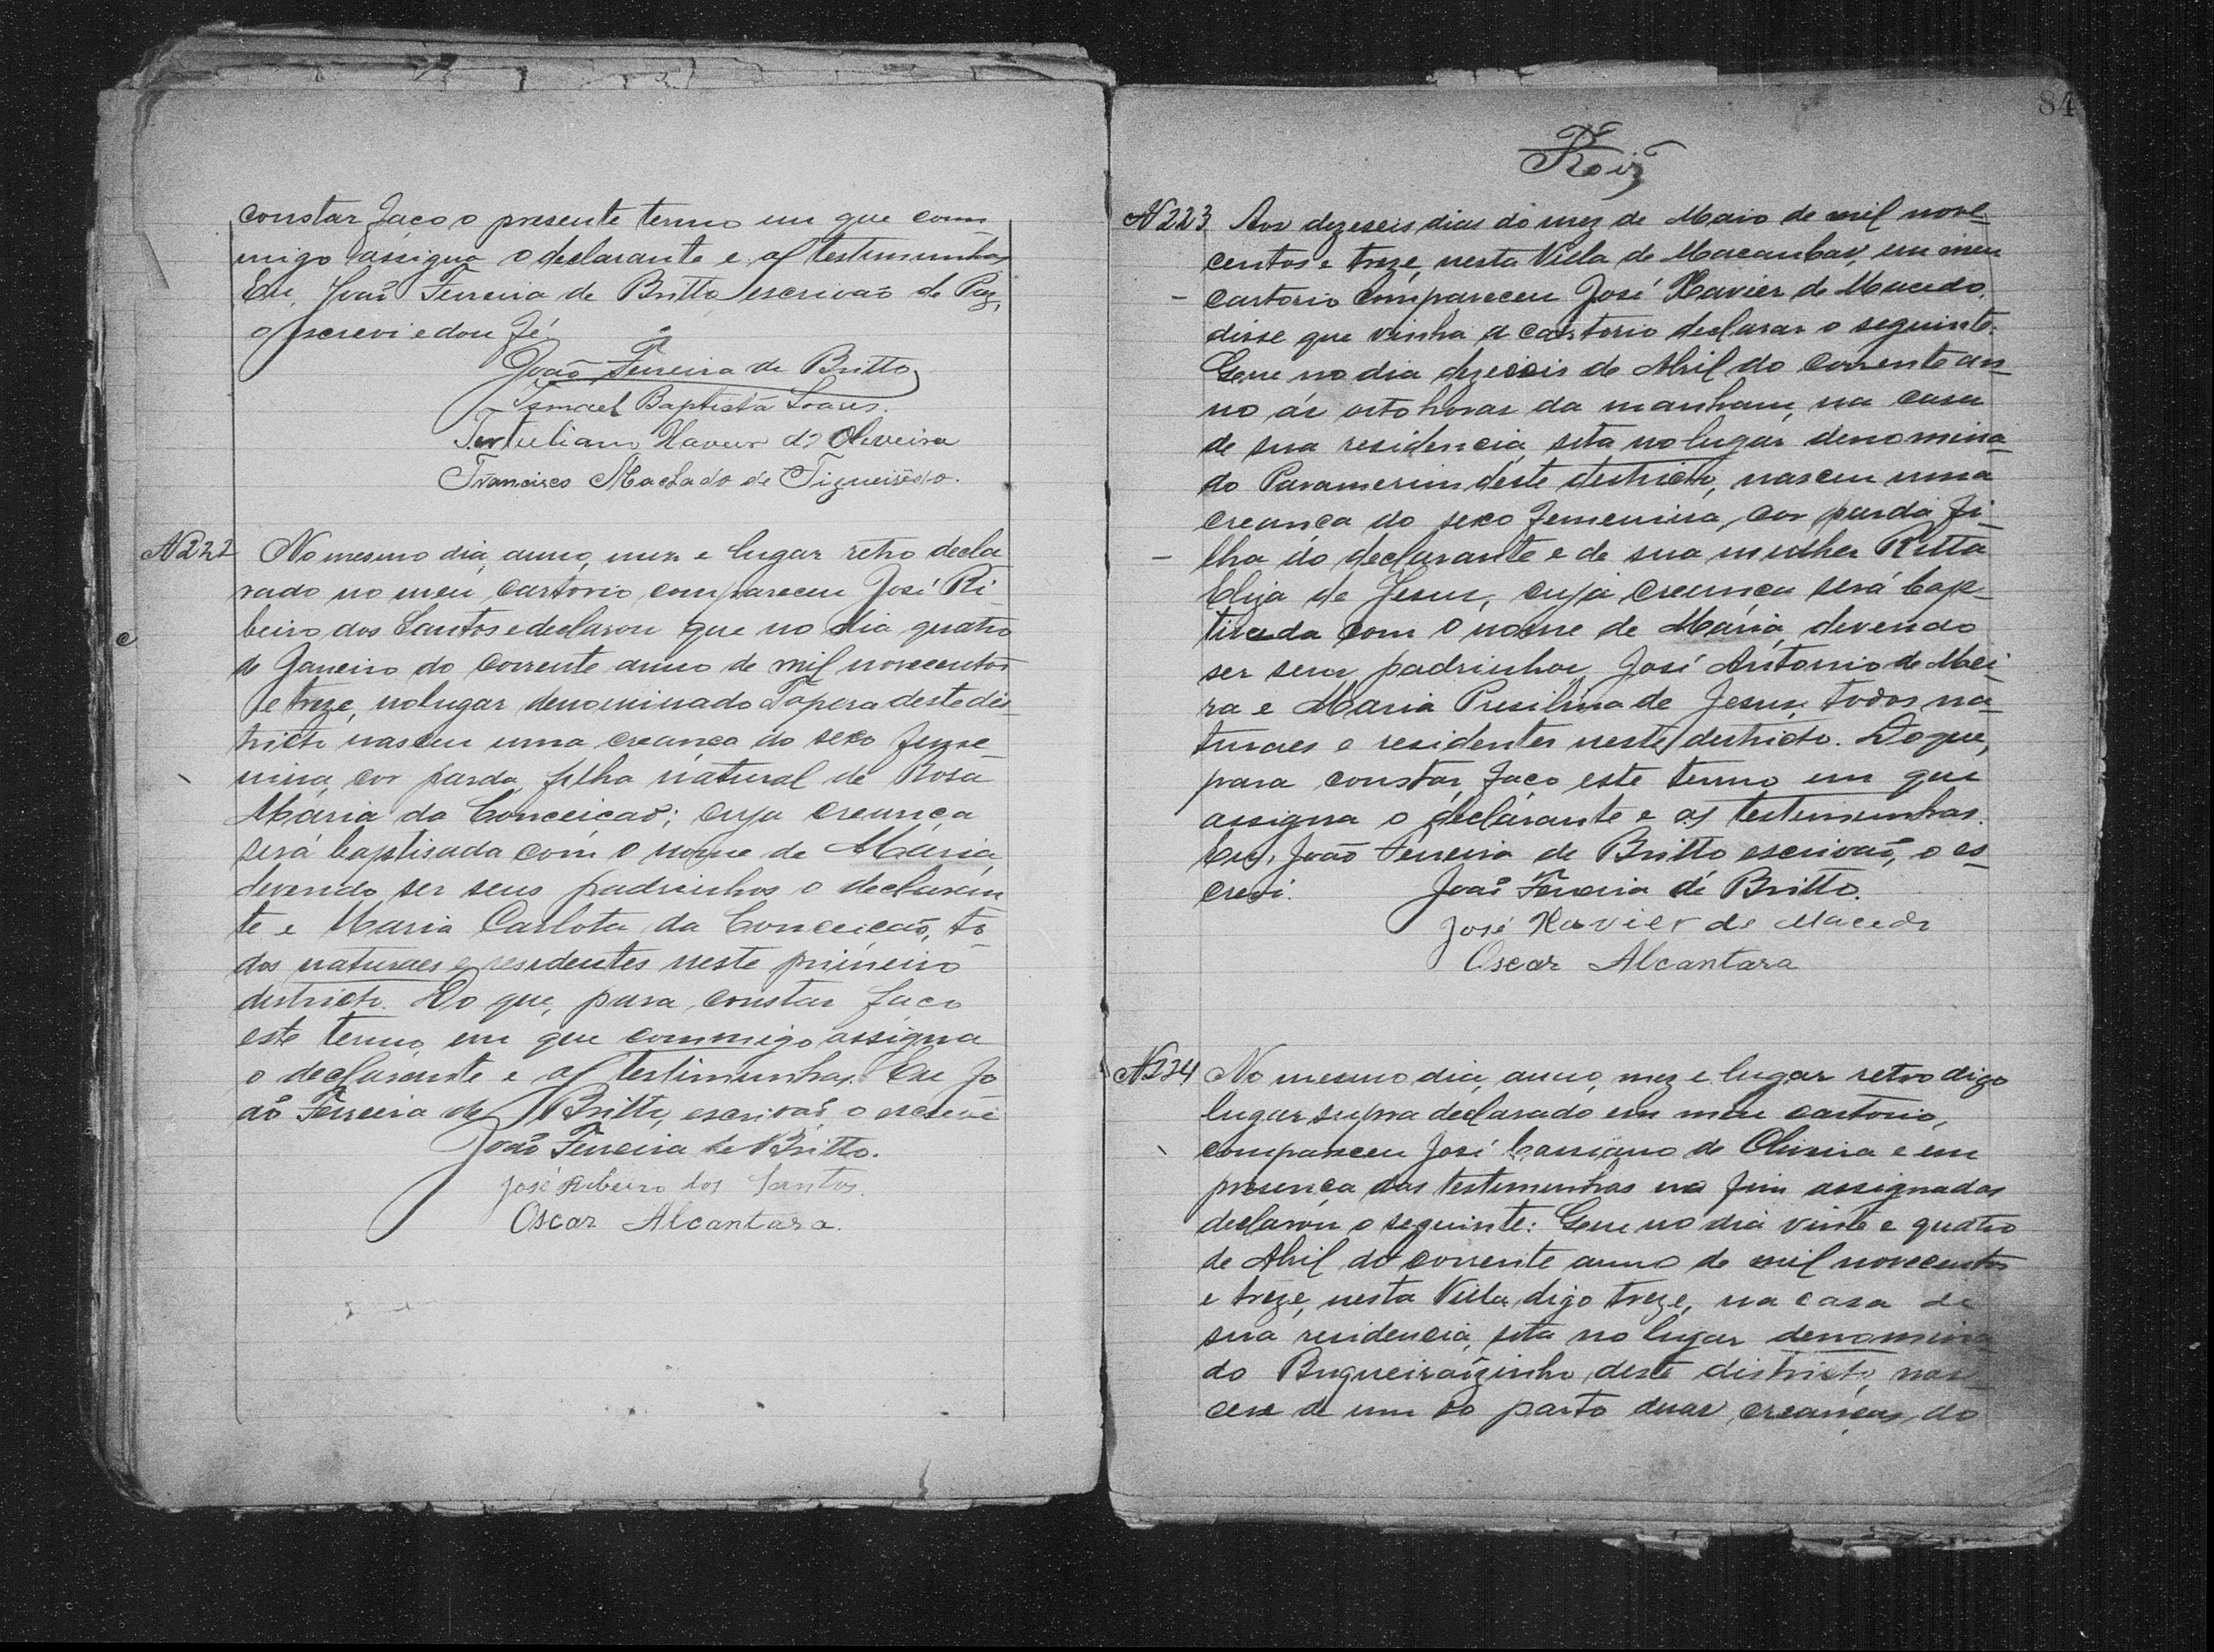 constar faço o presente termo em que com
migo assigna o declarante e as testimunhas
Eu, João Ferreira de Britto escrivão de Paz,
o screvi e dou fé
João Ferreira de Britto
Ismael Baptista Soares.
Tertuliano Xavier de Oliveira
Francisco Machado de Figueirêdo.
N 222 No mesmo dia, anno, mez e lugar retro decla
rado no meu cartorio compareceu José Ri-
beiro dos Santos e declarou que no dia quatro
de Janeiro do corrente anno de mil novecentos
e treze, no lugar denominado Tapera deste dis-
tricto nasceu uma creança do sexo feme
nina, cor parda, filha natural de Rosa
Maria da Conceição; cuja creança
será baptisada com o nome de Maria,
devendo ser seus padrinhos o declaran
te e Maria Carlota da Conceição, to
dos naturaes e residentes neste primeiro
districto. Do que, para constar faço
este termo em que commigo assigna
o declarante e as testimunhas. Eu Jo
ão Ferreira de Britto, escrivão o escrevi
João Ferreira de Britto.
José Ribeiro dos Santos.
Oscar Alcantara.
84
Roiz
N 223 Aos dezeseis dias do mez de Maio de mil nove
centos e treze, nesta Villa de Macaubas, em meu
cartorio compareceu José Xavier de Macedo,
disse que vinha a cartorio declarar o seguinte.
Que no dia dezeseis de Abril do corrente an-
no ás oito horas da manham, na casa
de sua residencia, sita no lugar denomina-
do Paramerim deste destricto, nasceu uma
creança do sexo femenina, cor parda fi-
lha do declarante e de sua mulher Ritta
Eliza de Jesus, cuja creança será bap-
tisada com o nome de Maria, devendo
ser seus padrinhos José Antonio de Mei
ra e Maria Presilina de Jesus, todos na-
turaes e residentes neste destricto. Do que,
para constar, faço este termo em que
assigna o declarante e as testimunhas.
Eu, João Ferreira de Britto escrivão, o es-
crevi. João Ferreira de Britto.
José Xavier de Macedo
Oscar Alcantara
N 224 No mesmo dia, anno, mez e lugar retro digo
lugar supra declarado em meu cartorio,
compareceu José Cassiano de Oliveira e em
presença das testimunhas no fim assignadas
declarou o seguinte: Que no dia vinte e quatro
de Abril do corrente anno de mil novecentos
e treze, nesta Villa digo treze, na casa de
sua residencia, sita no lugar denomina
do Buqueirãozinho deste districto, nas-
ceu de um só parto duas creanças do